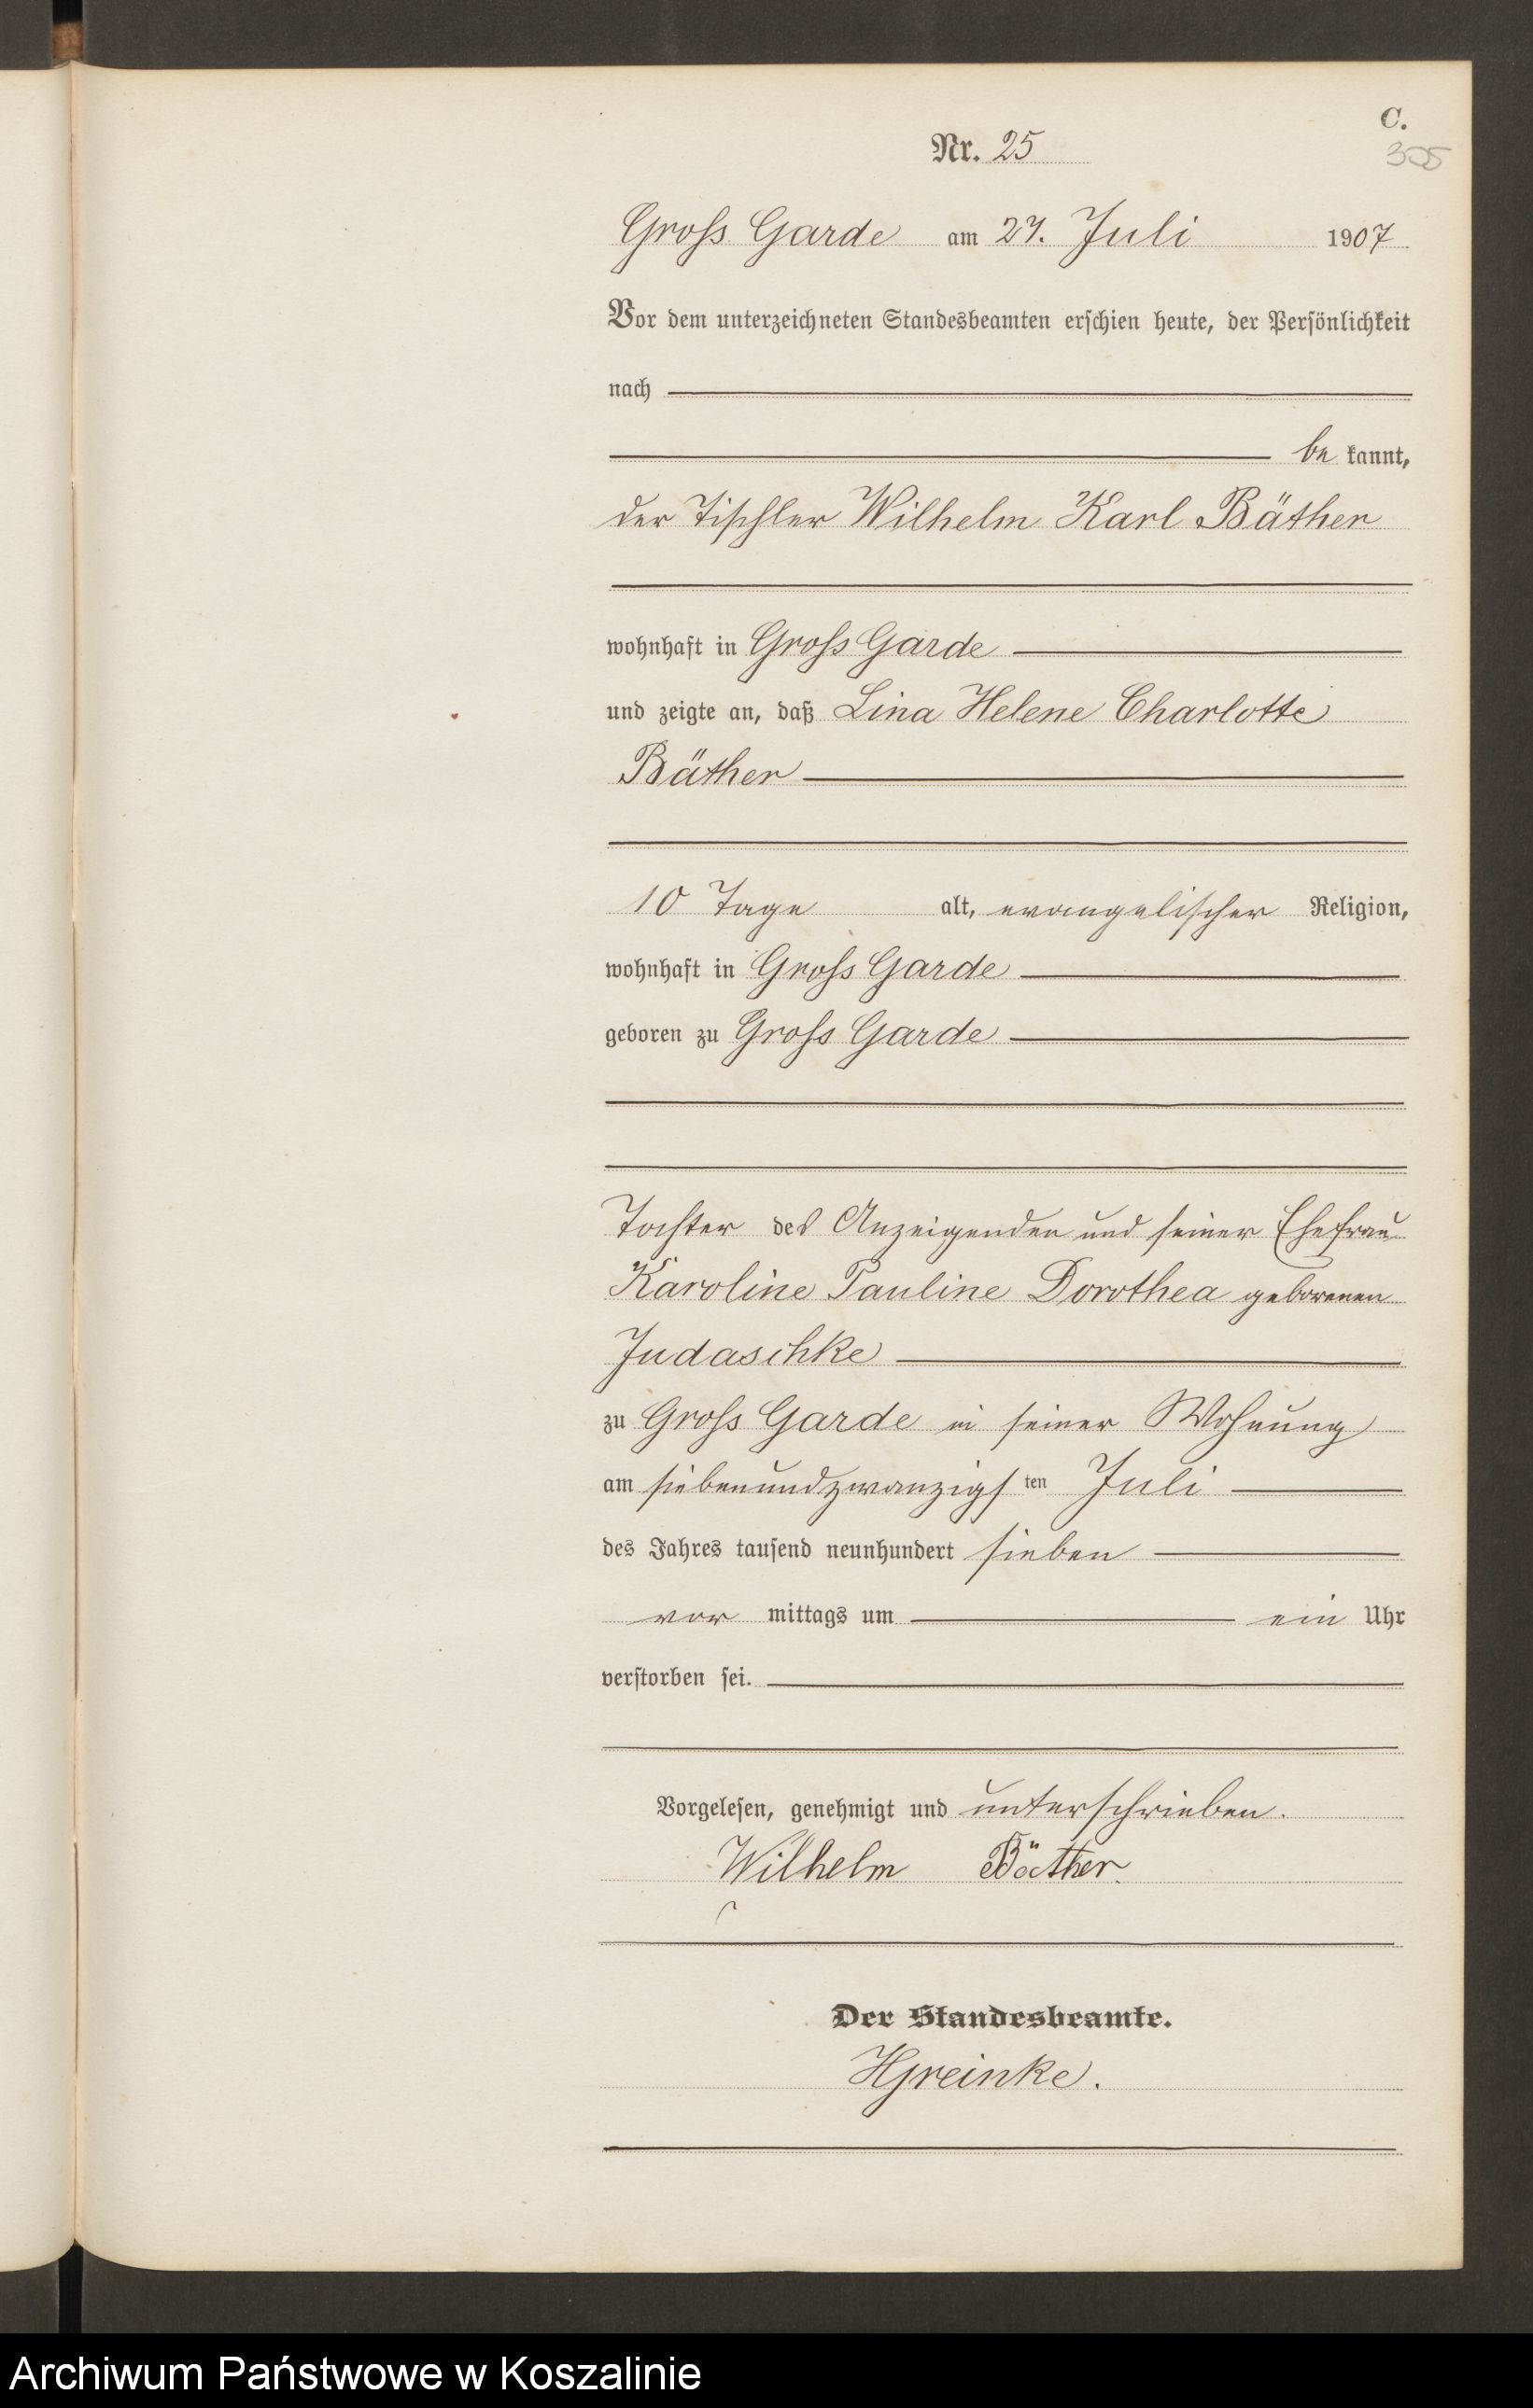 C.
Nr. 25
305
Groß Garde am 27. Juli 1907
Vor dem unterzeichneten Standesbeamten erschien heute, der Persönlichkeit
nach
be kannt,
der Tischler Wilhelm Karl Bäther
wohnhaft in Groß Garde
und zeigte an, daß Lina Helene Charlotte
Bäther
10 Tage alt, evangelischer Religion,
wohnhaft in Groß Garde
geboren zu Groß Garde
Tochter des Anzeigenden und seiner Ehefrau
Karoline Pauline Dorothea geborenen
Judaschke
zu Groß Garde in seiner Wohnung
am siebenundzwanzigsten Juli
des Jahres tausend neunhundert sieben
vor mittags um ein Uhr
verstorben sei.
Vorgelesen, genehmigt und unterschrieben.
Wilhelm Bäther.
Der Standesbeamte.
HGreinke.
Archiwum Państwowe w Koszalinie